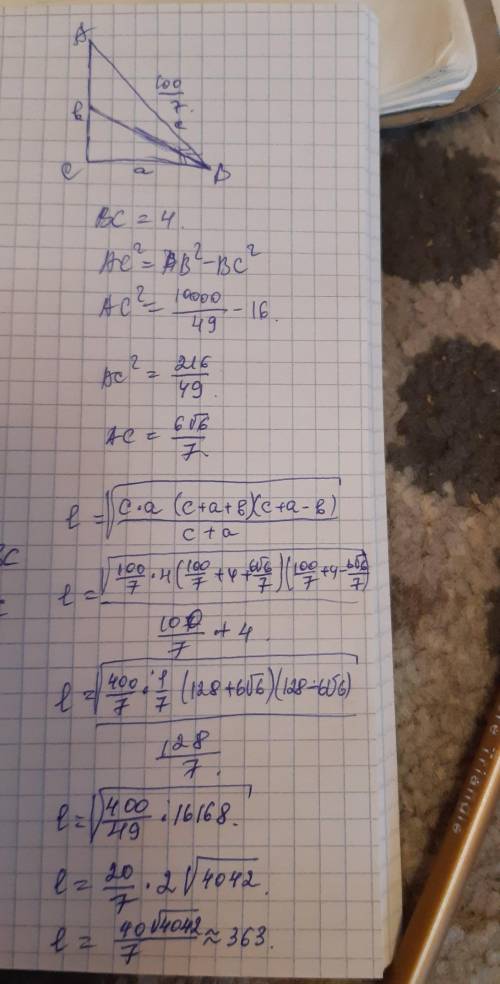 A
100/7
b
c
C a B
BC = 4.
AC² = AB² - BC²
AC² = 10000/49 - 16.
AC² = 216/49.
AC = 6√6/7.
l = √(c·a (c+a+b)(c+a-b))/(c+a)
l = √(100/7 · 4 (100/7 + 4 + 6√6/7)(100/7 + 4 - 6√6/7))/(100/7 + 4.)
l = √(400/7 · 1/7 (128+6√6)(128-6√6))/(128/7.)
l = √(400/49 · 16168.)
l = 20/7 · 2√4042.
l = 40√4042/7 ≈ 363.